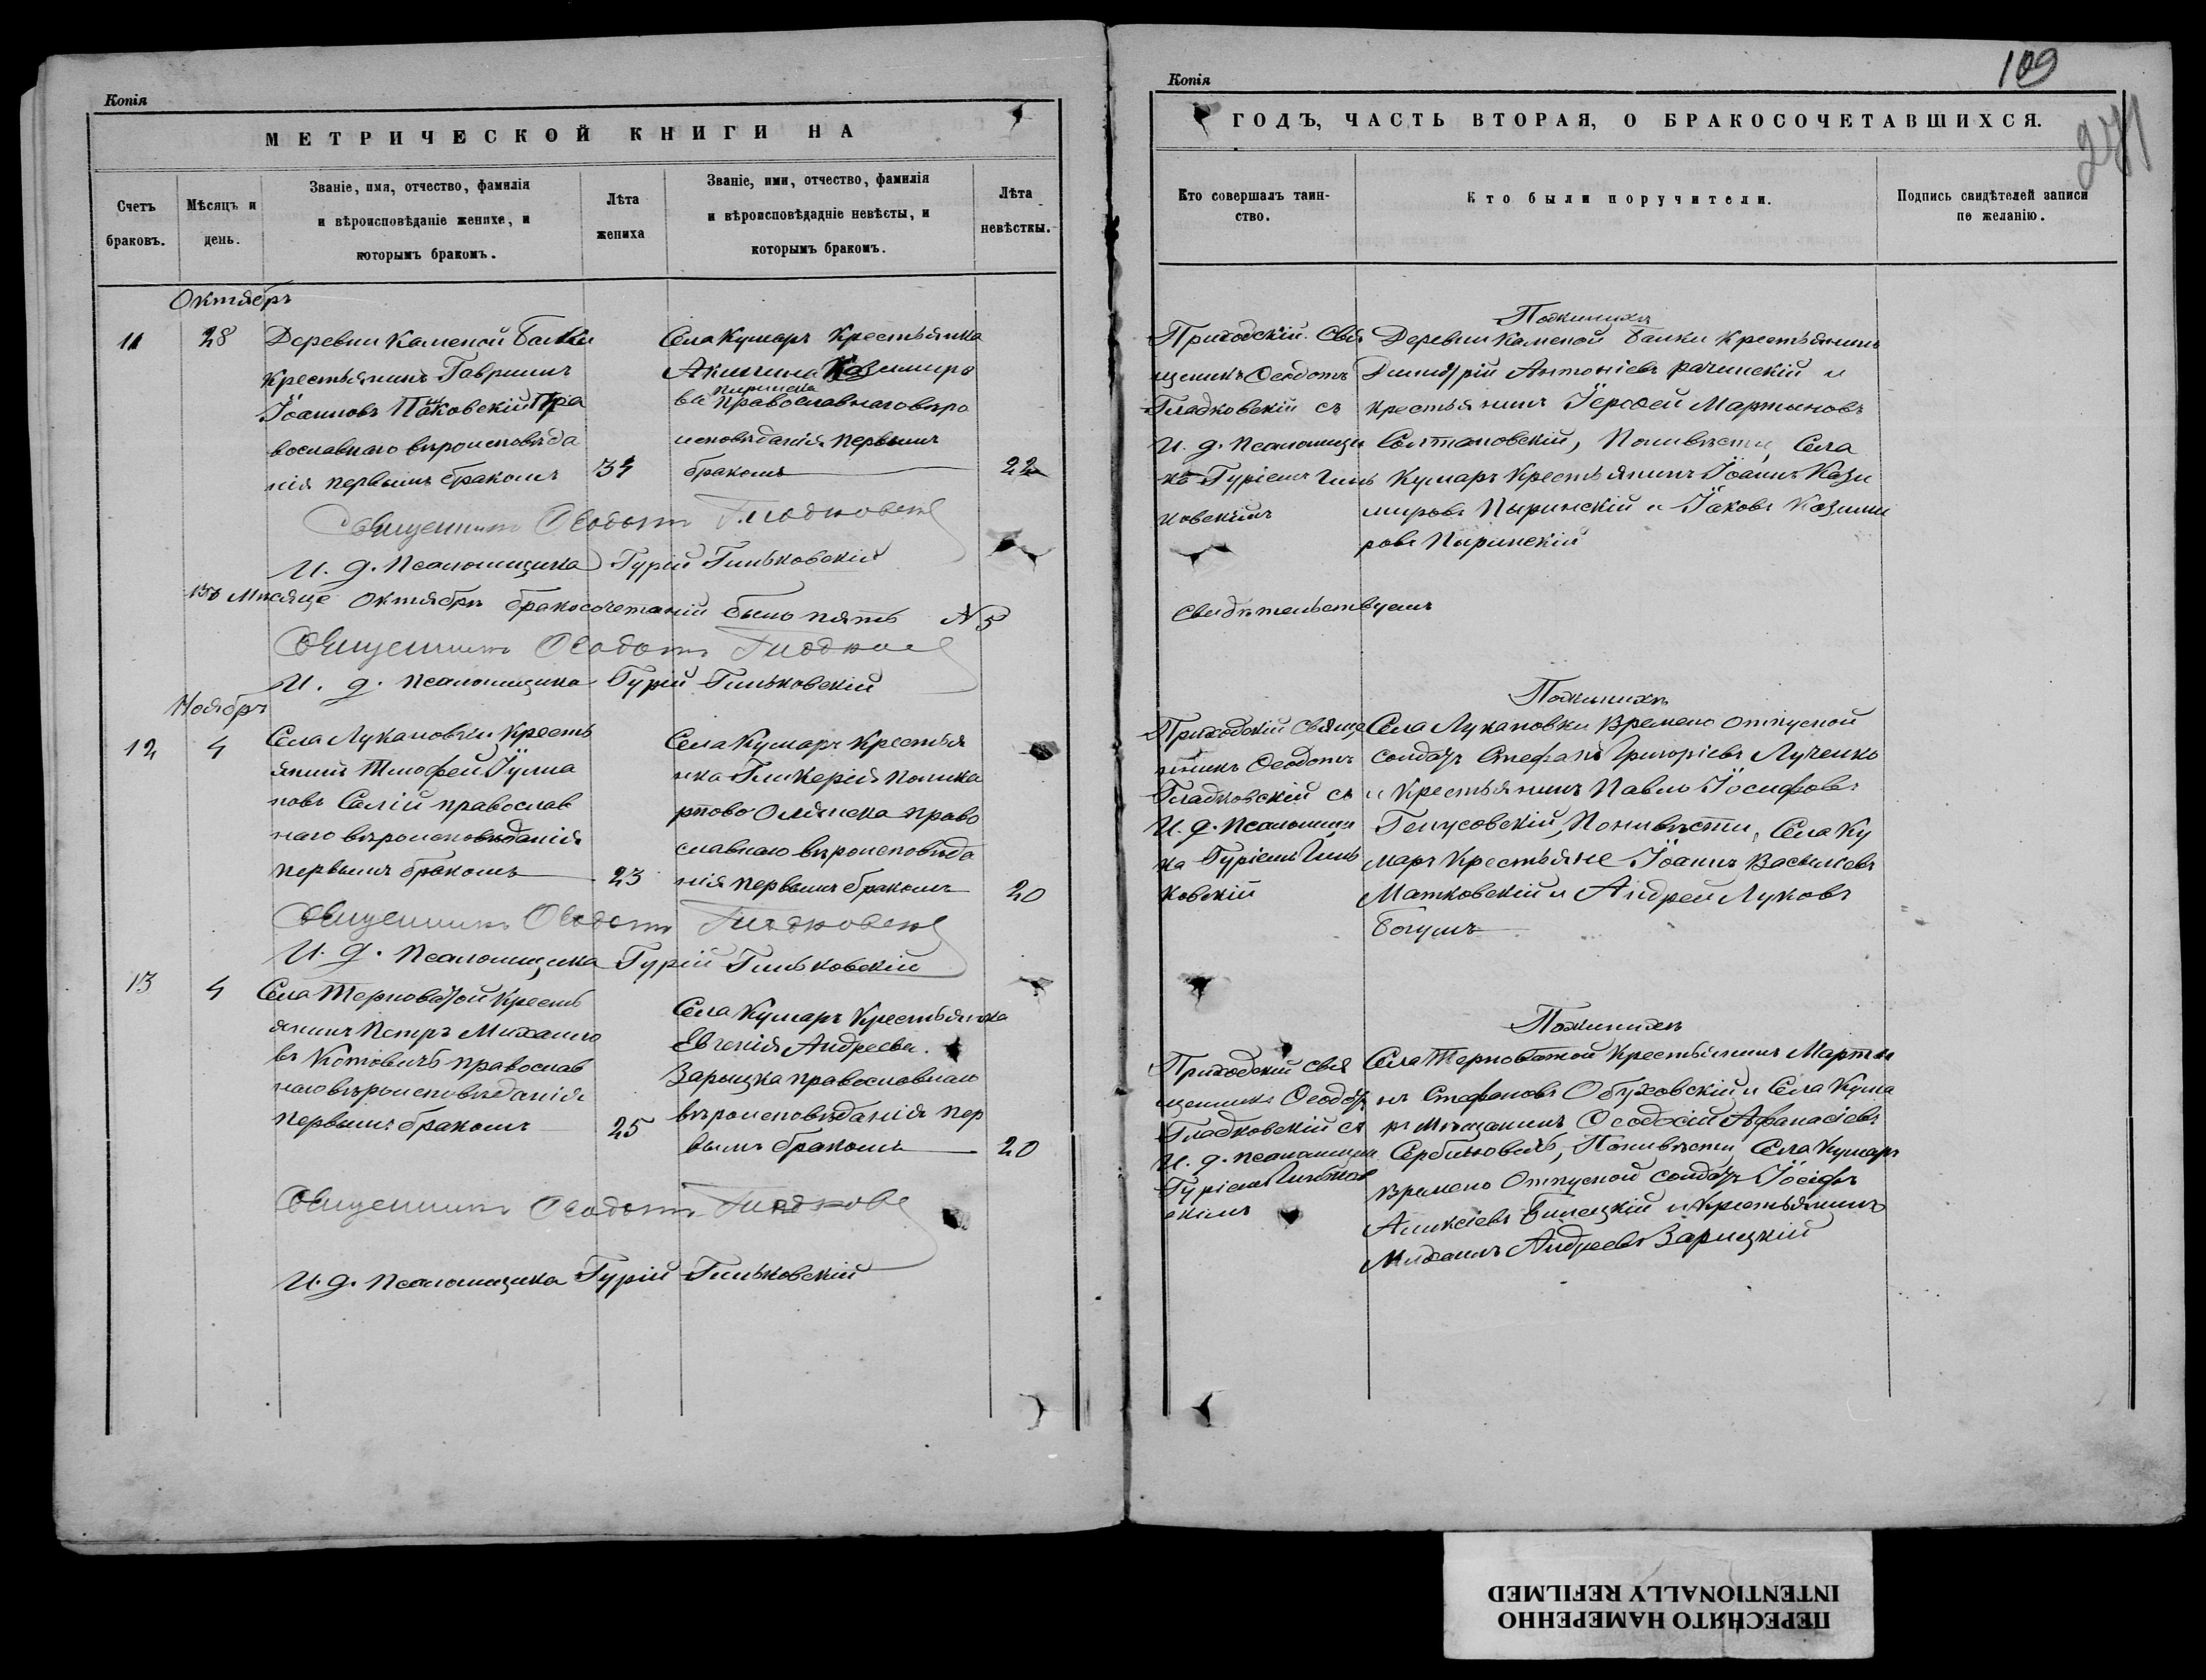 Копія
МЕТРИЧЕСКОЙ КНИГИ НА
Счетъ
браковъ.
Мѣсяцъ и
день.
Званіе, имя, отчество, фамилія
и вѣроисповѣданіе жениха, и
которымъ бракомъ.
Лѣта
жениха
Званіе, имя, отчество, фамилія
и вѣроисповѣданіе невѣсты, и
которымъ бракомъ.
Лѣта
невѣсты.
Октябрь
11
28
Деревни Каменой Балки
Крестьянинъ Гавриилъ
Іоанновъ Паковскій Пра
вославнаго вѣроисповѣда
нія первымъ бракомъ
34
Села Кумаръ Крестьянка
Акилина Казимиро
ва Пиринска
православнаго вѣро
исповѣданія первымъ
бракомъ
22
Священникъ Ѳеодотъ Гладковскій
И. д. Псаломщика Гурій Гиньковскій
Въ Мѣсяцѣ Октябрѣ бракосочетаній было пять № 5
Священникъ Ѳеодотъ Гладков
И. д. псаломщика Гурій Гиньковскій
Ноябрь
12
4
Села Лукановки Кресть
янинъ Тимофей Іулиа
новъ Салій православ
наго вѣроисповѣданія
первымъ бракомъ
23
Села Кумаръ Крестья
нка Гликерія Полика
рпова Олянска право
славнаго вѣроисповѣда
нія первымъ бракомъ
20
Священникъ Ѳеодотъ Гладковскій
И. д. Псаломщика Гурій Гиньковскій
13
4
Села Терноватой Кресть
янинъ Петръ Михаило
въ Котовичъ православ
наго вѣроисповѣданія
первымъ бракомъ
25
Села Кумаръ Крестьянка
Евгенія Андреева
Зарыцка православнаго
вѣроисповѣданія пер
вымъ бракомъ
20
Священникъ Ѳеодотъ Гладков
И. д. Псаломщика Гурій Гиньковскій
Копія
109
271
ГОДЪ, ЧАСТЬ ВТОРАЯ, О БРАКОСОЧЕТАВШИХСЯ.
Кто совершалъ таин-
ство.
Кто были поручители.
Подпись свидѣтелей записи
по желанію.
Приходскій Свя
щеникъ Ѳеодотъ
Гладковскій съ
И. д. псаломщи
ка Гуріемъ Гинь
ковскимъ
Пожениху
Деревни Каменой Балки Крестьянинъ
Димитрій Антоніевъ Рачинскій и
крестьянинъ Іерофей Мартыновъ
Солтановскій, Поневѣсти, Села
Кумаръ Крестьянинъ Іоаннъ Кази
мировъ Пыринскій и Іаковъ Казими
ровъ Пыринскій
Свидѣтельствуемъ
Приходскій Свяще
никъ Ѳеодотъ
Гладковскій съ
И. д. Псаломщи
ка Гуріемъ Гинь
ковскій
Пожениху
Села Лукановки Времено отпускной
солдатъ Стефанъ Григоріевъ Лученко
и Крестьянинъ Павло Іосифовъ
Генусовскій, Поневѣсти, Села Ку
маръ Крестьяне Іоаннъ Васильевъ
Матковскій и Андрей Луковъ
Богушъ
Приходскій Свя
щеникъ Ѳеодотъ
Гладковскій съ
И. д. псаломщи
Гуріемъ Гиньков
скимъ
Пожениху
Села Терноватой Крестьянинъ Марты
нъ Стефановъ Обуховскій и Села Кума
ръ Мѣщанинъ Ѳеодосій Афанасіевъ
Сербиновичъ, Поневѣсти, Села Кумаръ
Времено Отпускной солдатъ Іосифъ
Алексіевъ Билецкій и Крестьянинъ
Михаилъ Андреевъ Зарицкій
ПЕРЕСНЯТО НАМЕРЕННО
INTENTIONALLY REFILMED